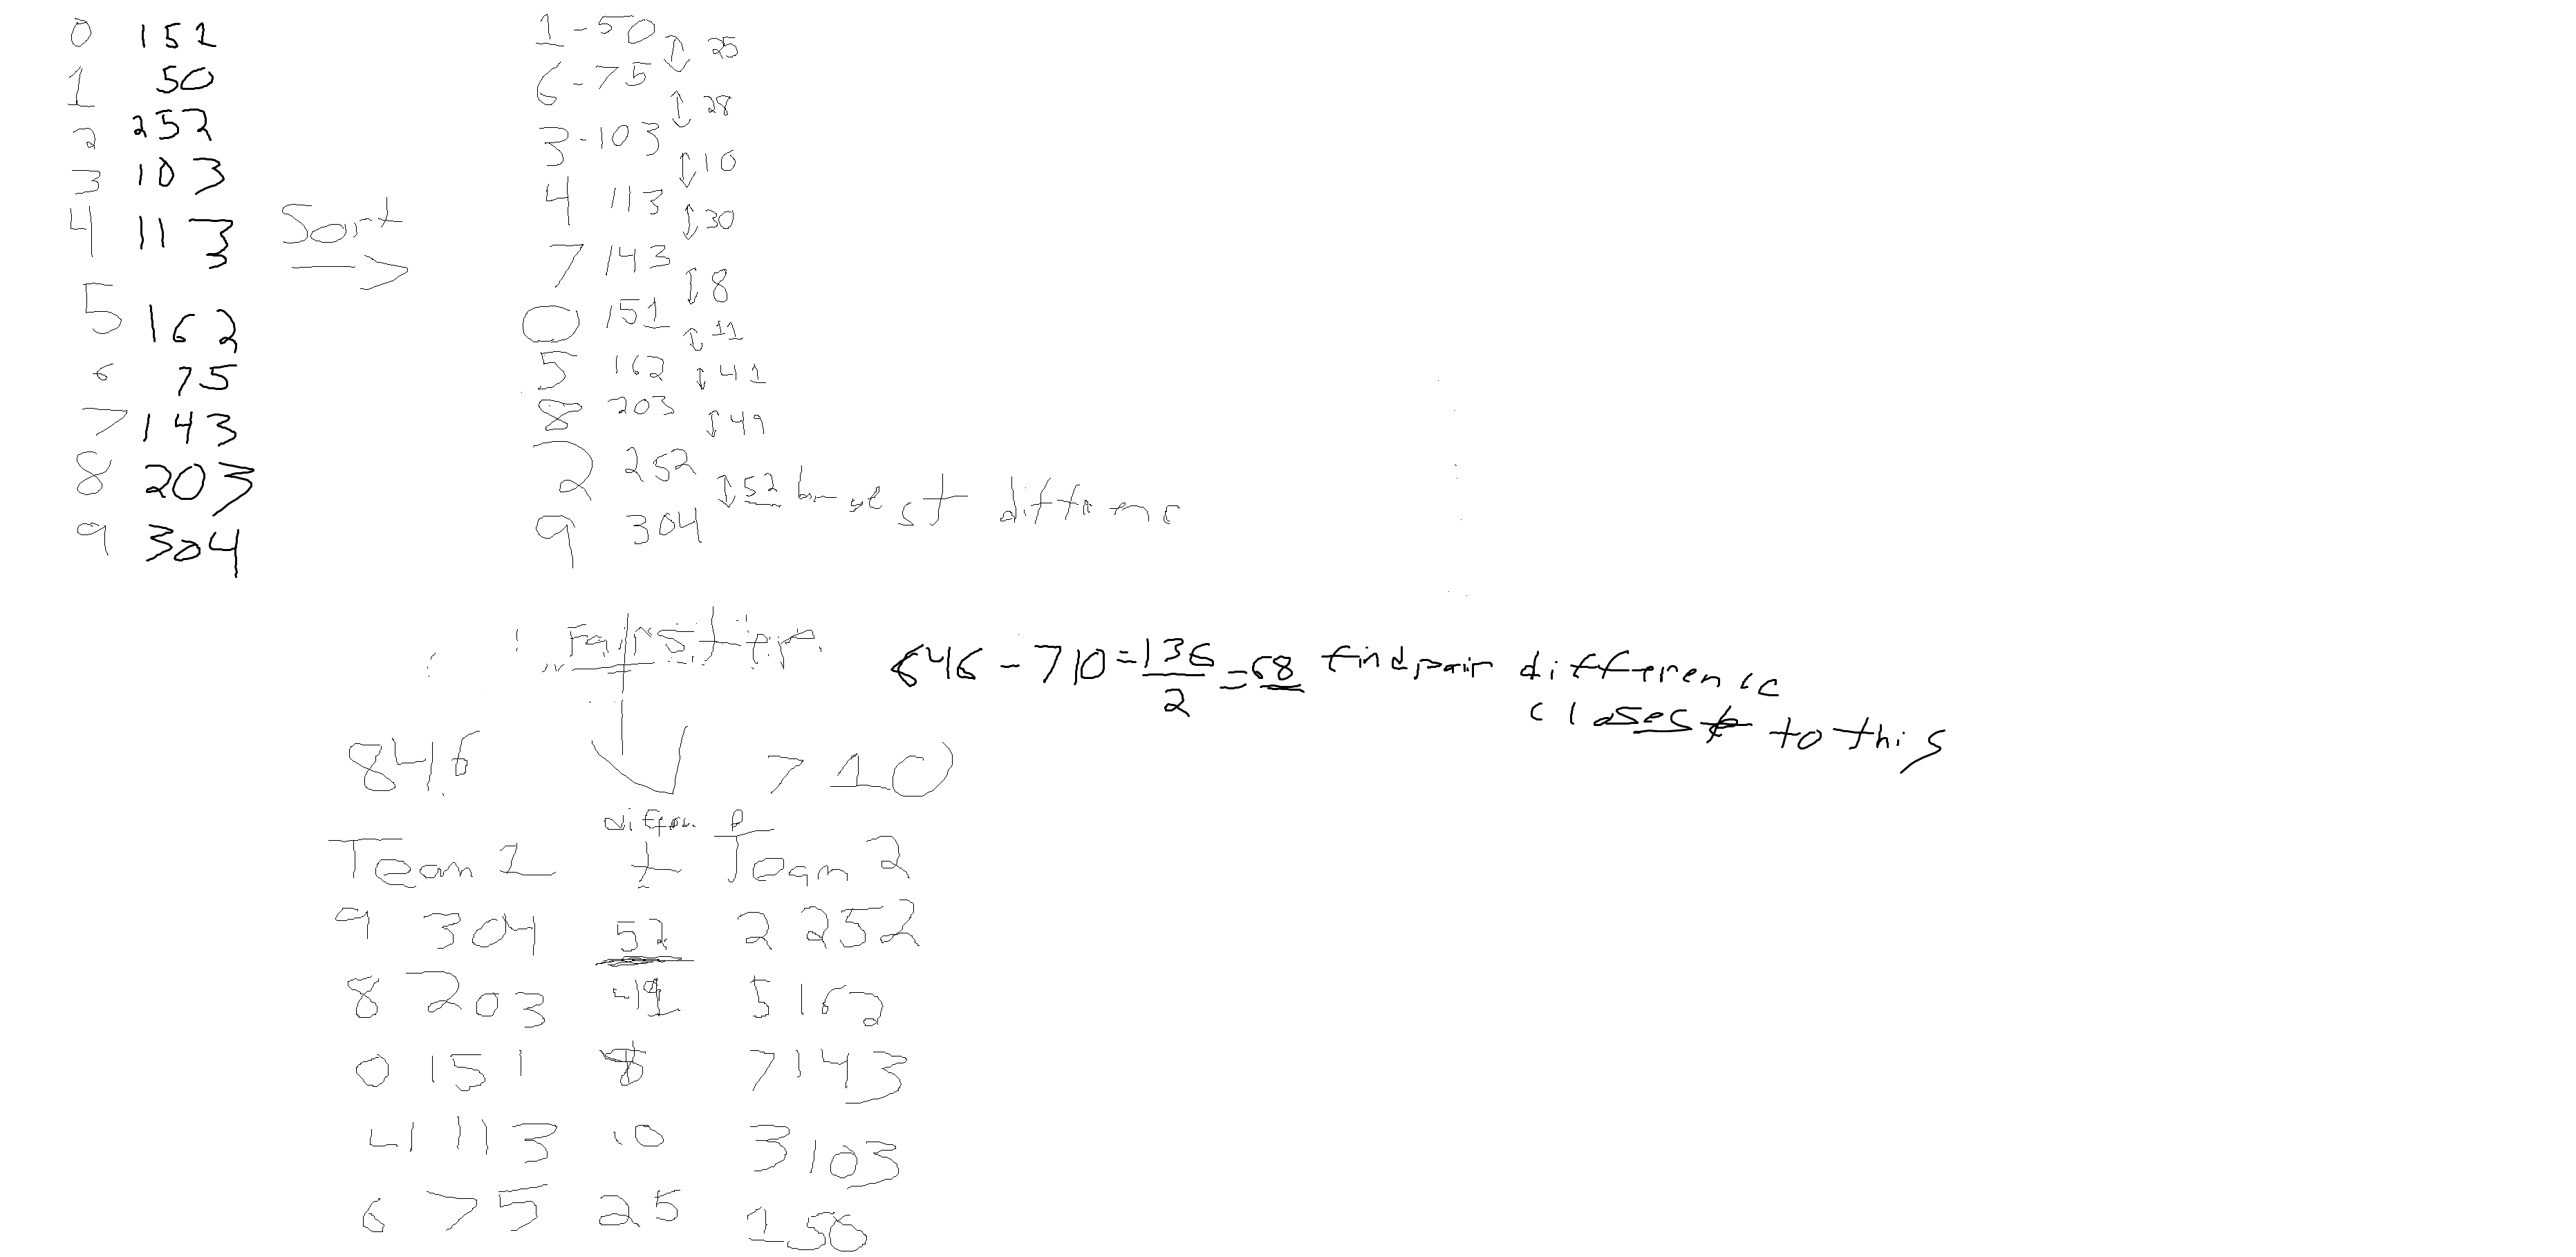 0 151
1 50
2 252
3 103
4 113
5 162
6 75
7 143
8 203
9 304
Sort
1-50
25
6-75
28
3-103
10
4 113
30
7 143
8
0 151
11
5 162
41
8 203
49
2 252
52 difference
9 304
First step
846-710=136/2=68 find pair difference
closest to this
846 710
Team 1 Team 2
9 304 52 2 252
8 203 41 5 162
0 151 8 7 143
4 113 10 3 103
6 75 25 1 50